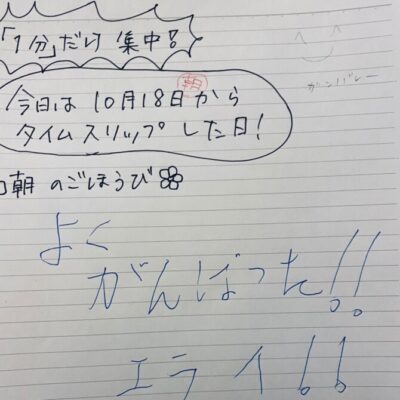 「1分」だけ 集中!
ガンバレー
朝
今日は 10月18日から
タイムスリップした日!
朝 のごほうび
よく
がんばった!!
エライ!!